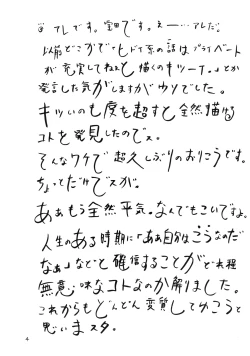 アレです。宝田です。え——...アレだ。
以前どこかで「モドイ系の話はプライベート
が充実してねェと描くのキツーナ。」とか
発言した気がしますがウソでした。
キツいのも度を超すと全然描ける
コトを発見したのでス。
そんなワケで超久しぶりのおりこうです。
ちょってだけでスが。
あぁもう全然平気。なんでもこいですよ。
人生のある時期に「あぁ自分はこうなのだ
なぁ」などと確信することがどれ程
無意味なコトなのか解りました。
これからもどんどん変質してゆこうと
思いまスタ。
4